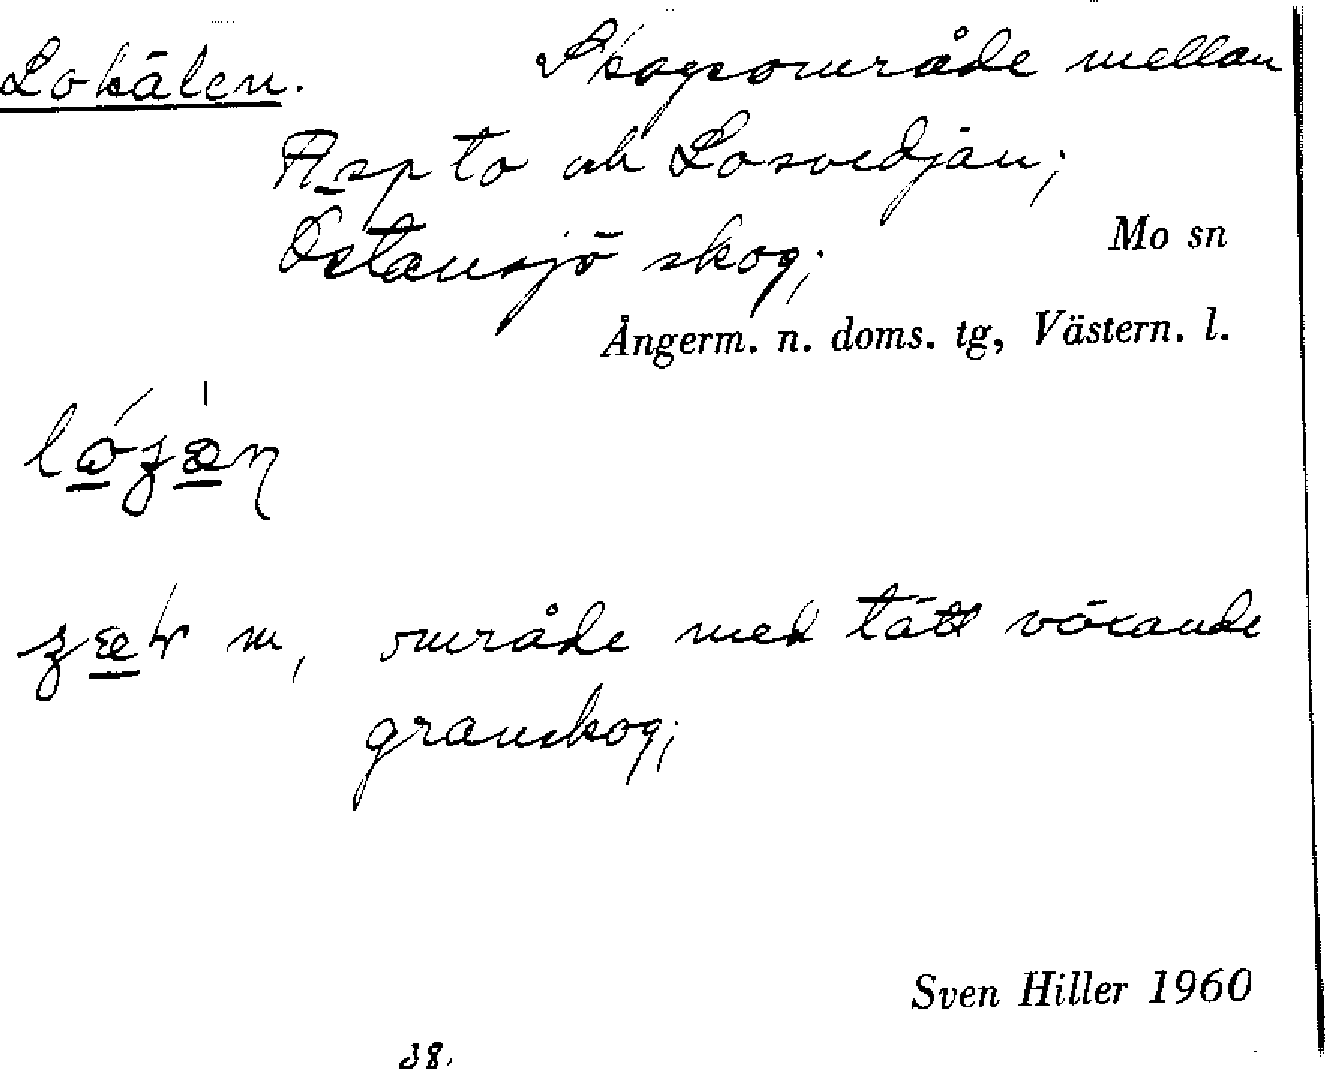 Lokälen. Skogsområde mellan
Aspto och Losvedjan;
Östansjö skog; Mo sn
Ångerm. n. doms. tg, Västern. l.
m, område med tätt växande
granskog;
Sven Hiller 1960